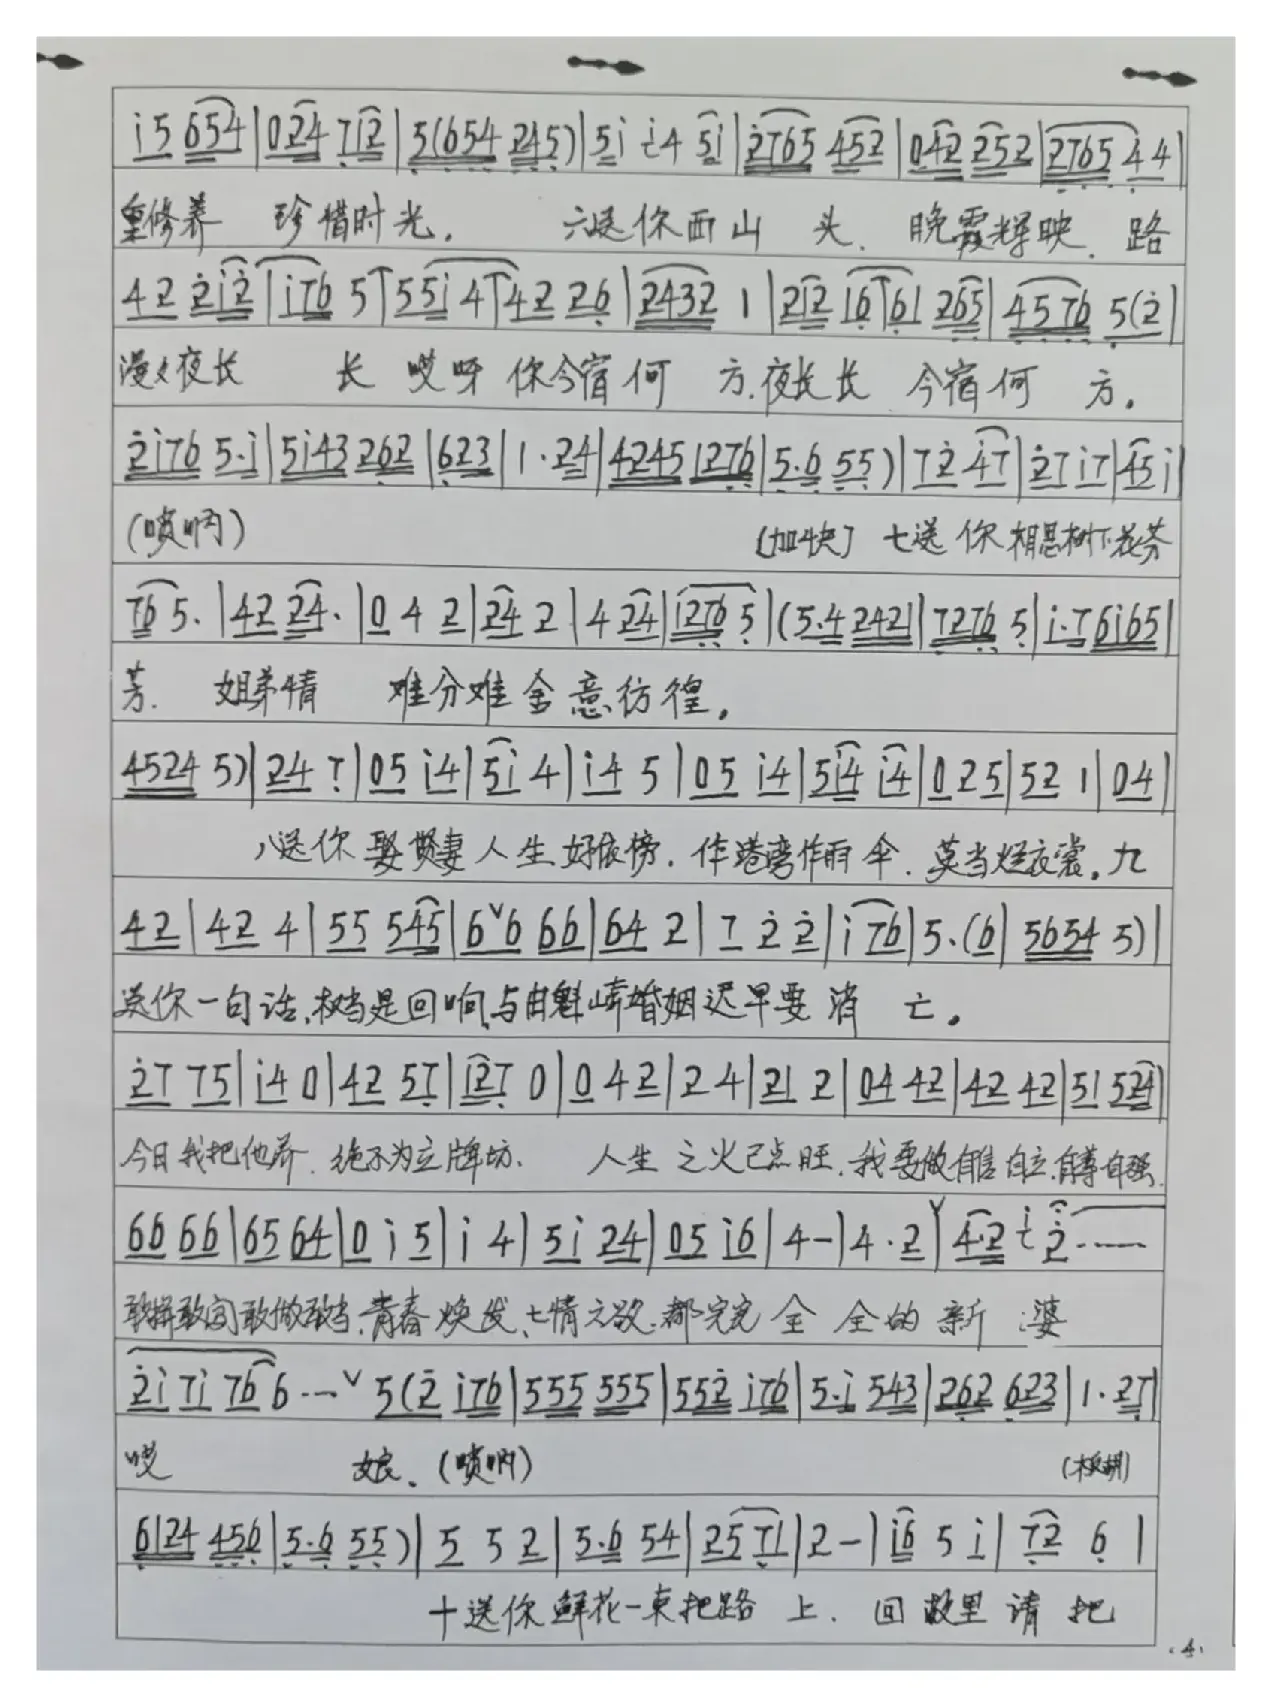 i 5 654|024 7 i2|5(654 245)|5i i4 5i|2765 452|042 252|2765 44|
重修养 珍惜时光. 六送你西山 头. 晚霞辉映. 路
42 2i2|i76 5|55i 4|42 26|2432 1|2i2 i6|61 265|4576 5(2|
漫々夜长 长 哎呀 你今宿何 方.夜长长 今宿何 方.
2i76 5·i|5i43 262|623|1·24|4245 1276|5·6 55)|72 47|27 i7|45 i|
(唢呐) [加快] 七送 你相思树下花芬
76 5·|42 24·|0 4 2|24 2|4 24|i276 5|(5·4 2421|7276 5|i·7 6i65|
芳. 姐弟情 难分难舍意彷徨.
4524 5)|24 7|05 i4|5i 4|i4 5|05 i4|5i4 i4|0 2 5|52 1|04|
八送你娶贤妻人生好依傍. 作港湾作雨伞. 莫当烂衣裳. 九
42|42 4|55 545|6ˇ6 66|64 2|7 2 2|i 76|5·(6|5654 5)|
送你一句话.权当是回响.与由婚姻迟早要消 亡.
27 75|i4 0|42 57|i27 0|0 4 2|2 4|21 2|04 42|42 42|51 524|
今日我把他弃. 绝不为立牌坊. 人生之火已点旺.我要做自信自立.自尊自强.
66 66|65 64|0 i 5|i 4|5i 24|05 i6|4-|4·2ˇ|4·2 i 2······
敢拼敢闯敢做敢当.青春焕发.七情六欲.都完完全 全的 新 婆
2i 7i 76 6···ˇ 5(2 i76|555 555|552 i76|5·i 543|262 623|1·27|
哎 娘.(唢呐) (板胡)
6124 456|5·6 55)|5 5 2|5·6 54|25 71|2-|i6 5 i|72 6|
十送你鲜花一束把路 上. 回故里 请 把
·4·